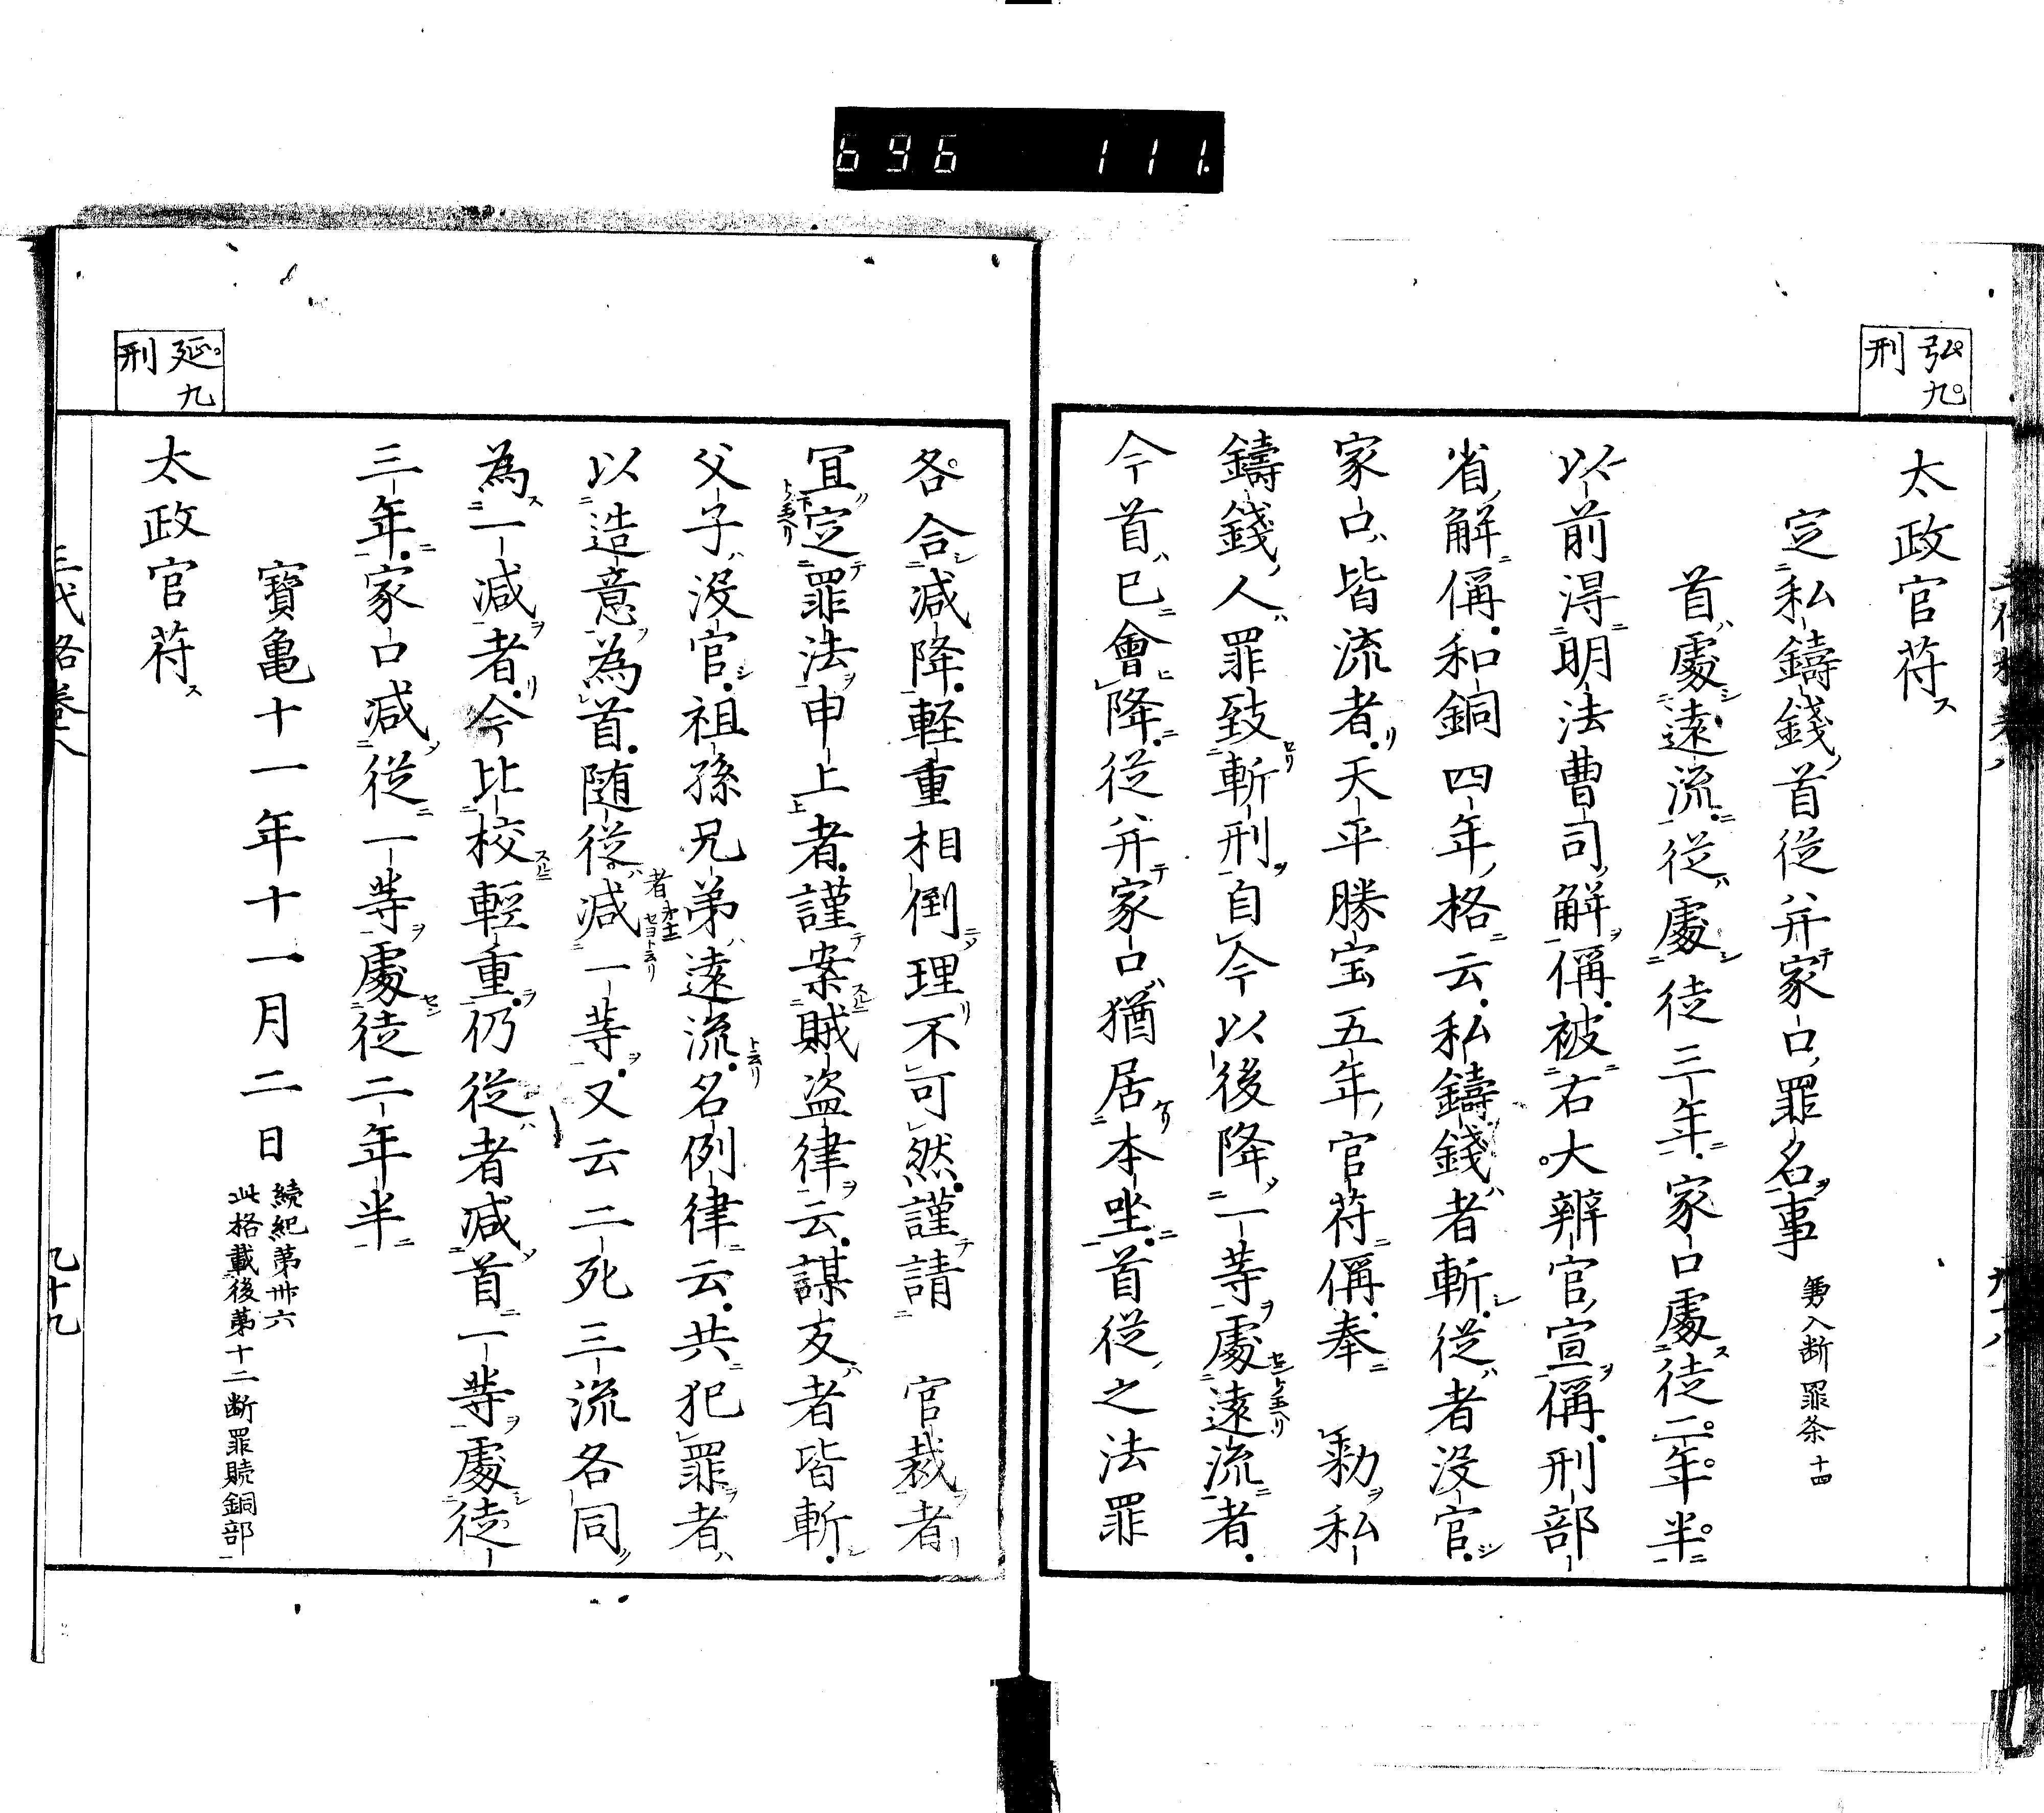 696 111
弘九
刑
太政官符ス
定私鋳錢首從并家口罪名事 勇入断罪条十四
首處遠流從處徒三年家口處徒二年半
以前得明法曹司解偁被右大辨官宣偁刑部
省解偁和銅四年格云私鑄錢者斬從者没官
家口皆流者天平勝宝五年官符偁奉 勅私
鑄錢人罪致斬刑自今以後降一等處遠流者
今首已會降從并家口猶居本坐首從之法罪
各合減降軽重相倒理不可然謹請 官裁者
冝定罪法申上者謹案賊盗律云謀反者皆斬
父子没官祖孫兄弟遠流名例律云共犯罪者
以造意為首随從減一等又云二死三流各同
為一減者今比校輕重仍從者減首一等處徒
三年家口減從一等處徒二年半
寳亀十一年十一月二日
續紀第卅六
此格載後第十二断罪贖銅部
延九
刑
太政官符ス
三代格巻八
九十九